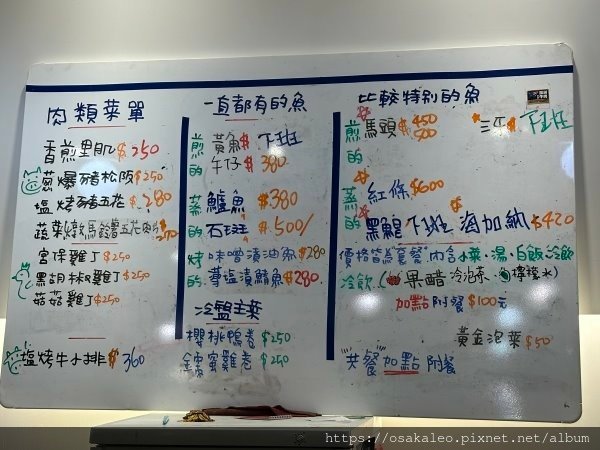 肉類菜單
香煎里肌$250
蔥爆豬松阪$250
塩烤豬五花$280
蔬菜燉馬鈴薯五花肉$270
宮保雞丁$250
黑胡椒雞丁$250
菇菇雞丁$250
塩烤牛小排$360
一直都有的魚
煎的
黃魚$下班
午仔$380
蒸的
鱸魚$380
石斑$500/
烤的
味噌漬油魚$280
薄塩漬鯖魚$280
冷盤主菜
櫻桃鴨卷$250
雞卷$250
比較特別的魚
煎的
馬頭$450
500
三匹 下班
蒸的
紅條$600
黑鯧 下班 海加納$420
價格皆為套餐 內含小菜、湯、白飯、冷飲
冷飲(果醋 冷泡茶、檸檬水)
加點附餐$100元
黃金泡菜$50
共餐加點附餐
https://osakaleo.pixnet.net/album